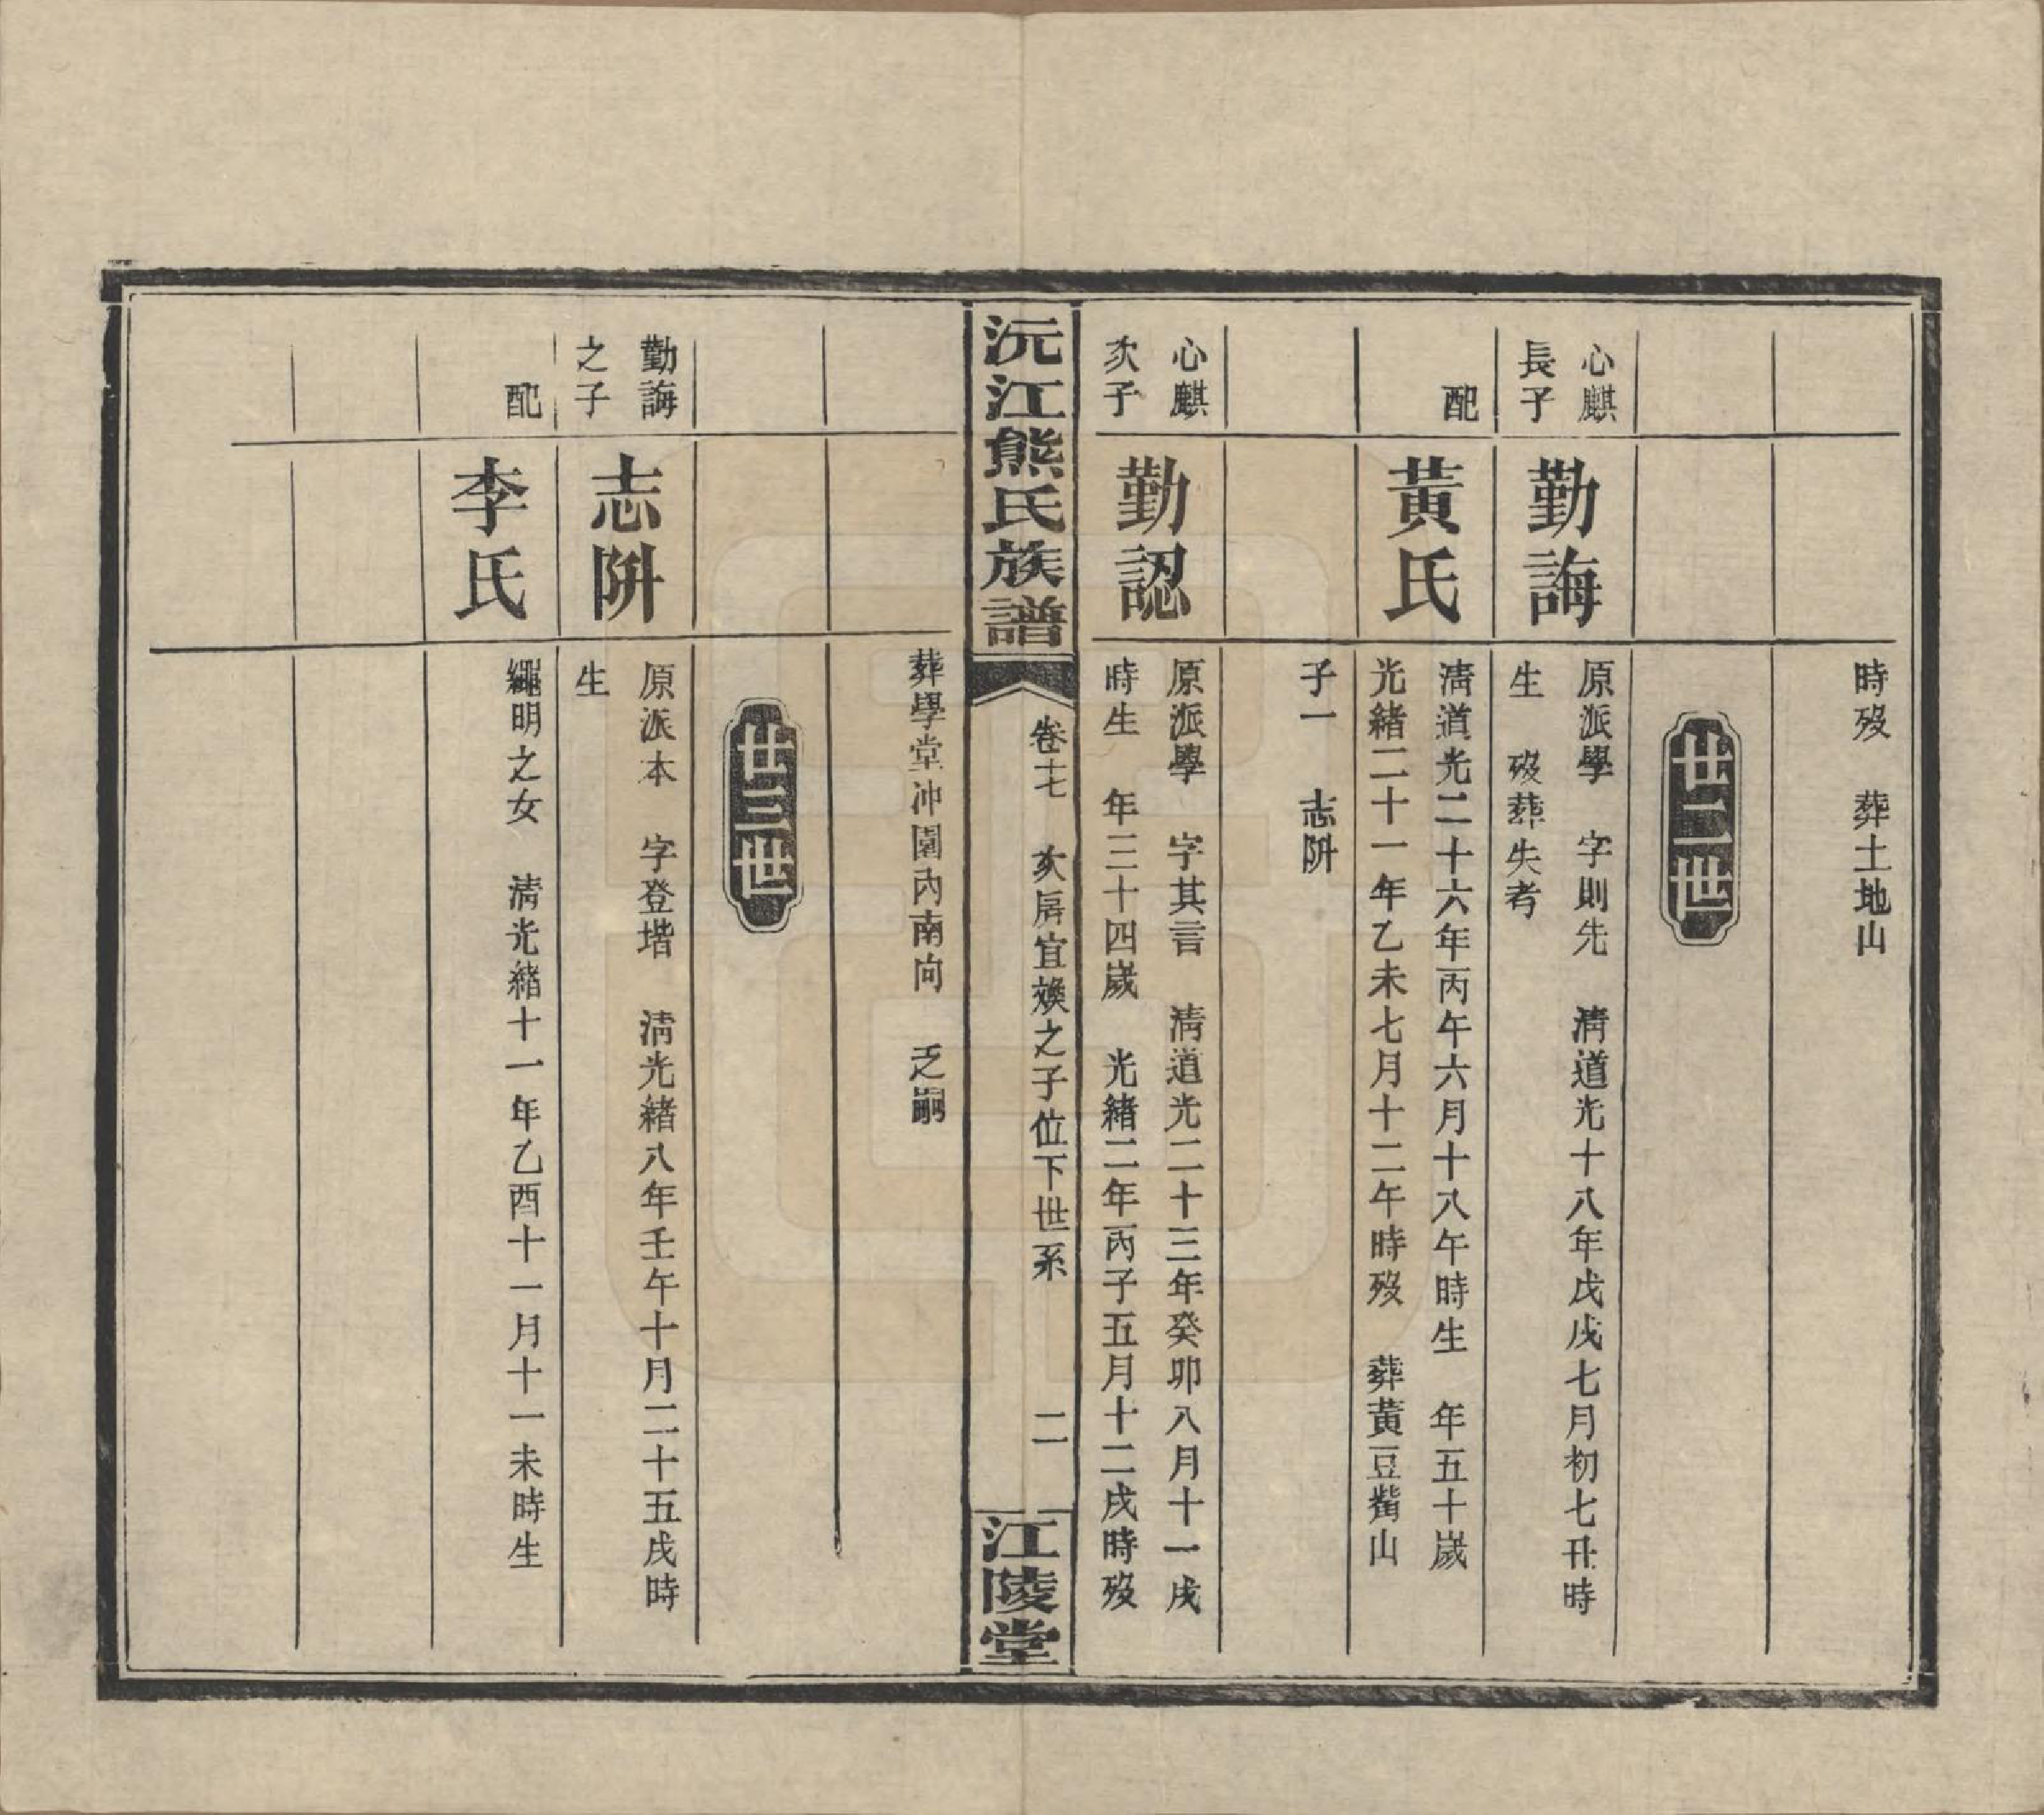 時歿　葬土地山
廿二世
心麒
長子
勤誨
原派學　字則先　淸道光十八年戊戌七月初七丑時
生　歿葬失考
配
黃氏
淸道光二十六年丙午六月十八午時生　年五十歲
光緒二十一年乙未七月十二午時歿　葬黃豆嘴山
子一　志阩
心麒
次子
勤認
原派學　字其言　淸道光二十三年癸卯八月十一戌
時生　年三十四歲　光緒二年丙子五月十二戌時歿
沅江熊氏族譜
卷十七　次房宜煥之子位下世系　二
江陵堂
葬學堂冲園內南向　乏嗣
廿三世
勤誨
之子
志阩
原派本　字登堦　淸光緒八年壬午十月二十五戌時
生
配
李氏
繩明之女　淸光緒十一年乙酉十一月十一未時生